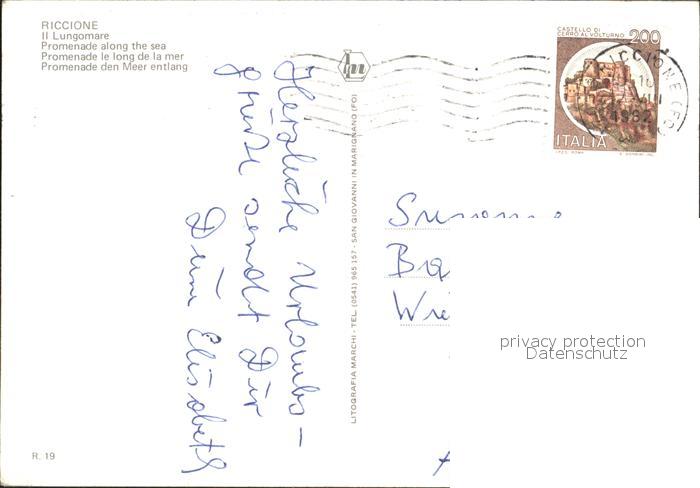 RICCIONE
Il Lungomare
Promenade along the sea
Promenade le long de la mer
Promenade den Meer entlang
CASTELLO DI
CERRO AL VOLTURNO
200
ITALIA
I.P.Z.S. ROMA
RICCIONE (FO)
1982
Herzliche Urlaubs-
grüße sendet Dir
Deine Elisabeth
LITOGRAFIA MARCHI - TEL. (0541) 965 157 - SAN GIOVANNI IN MARIGNANO (FO)
Susanne
privacy protection
Datenschutz
R. 19